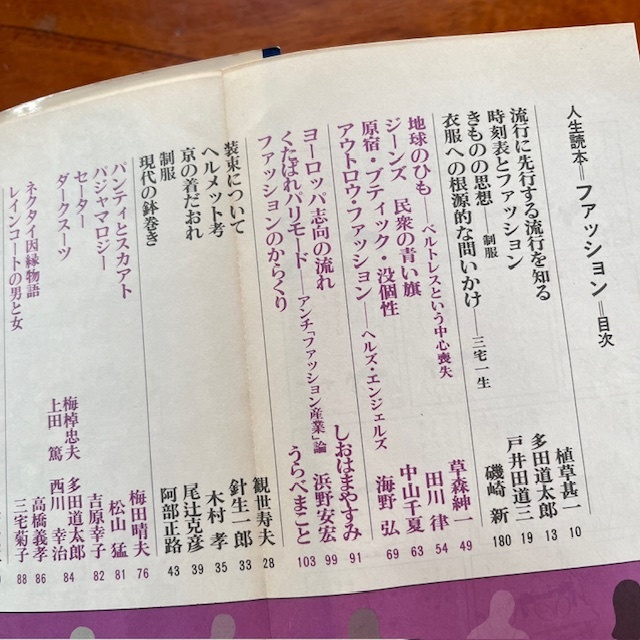 人生読本=ファッション=目次
流行に先行する流行を知る 植草甚一 10
時刻表とファッション 多田道太郎 13
きものの思想 制服 戸井田道三 19
衣服への根源的な問いかけ——三宅一生 磯崎 新 180
地球のひも——ベルトレスという中心喪失 草森紳一 49
ジーンズ 民衆の青い旗 田川 律 54
原宿・ブティック・没個性 中山千夏 63
アウトロウ・ファッション——ヘルズ・エンジェルズ 海野 弘 69
ヨーロッパ志向の流れ しおはまやすみ 91
くたばれパリモード——アンチ「ファッション産業」論 浜野安宏 99
ファッションのからくり うらべまこと 103
装束について 観世寿夫 28
ヘルメット考 針生一郎 33
京の着だおれ 木村 孝 35
制服 尾辻克彦 39
現代の鉢巻き 阿部正路 43
パンティとスカアト 梅田晴夫 76
パジャマロジー 松山 猛 81
セーター 吉原幸子 82
ダークスーツ 梅棹忠夫 多田道太郎
上田 篤 西川幸治 84
ネクタイ因縁物語 高橋義孝 86
レインコートの男と女 三宅菊子 88